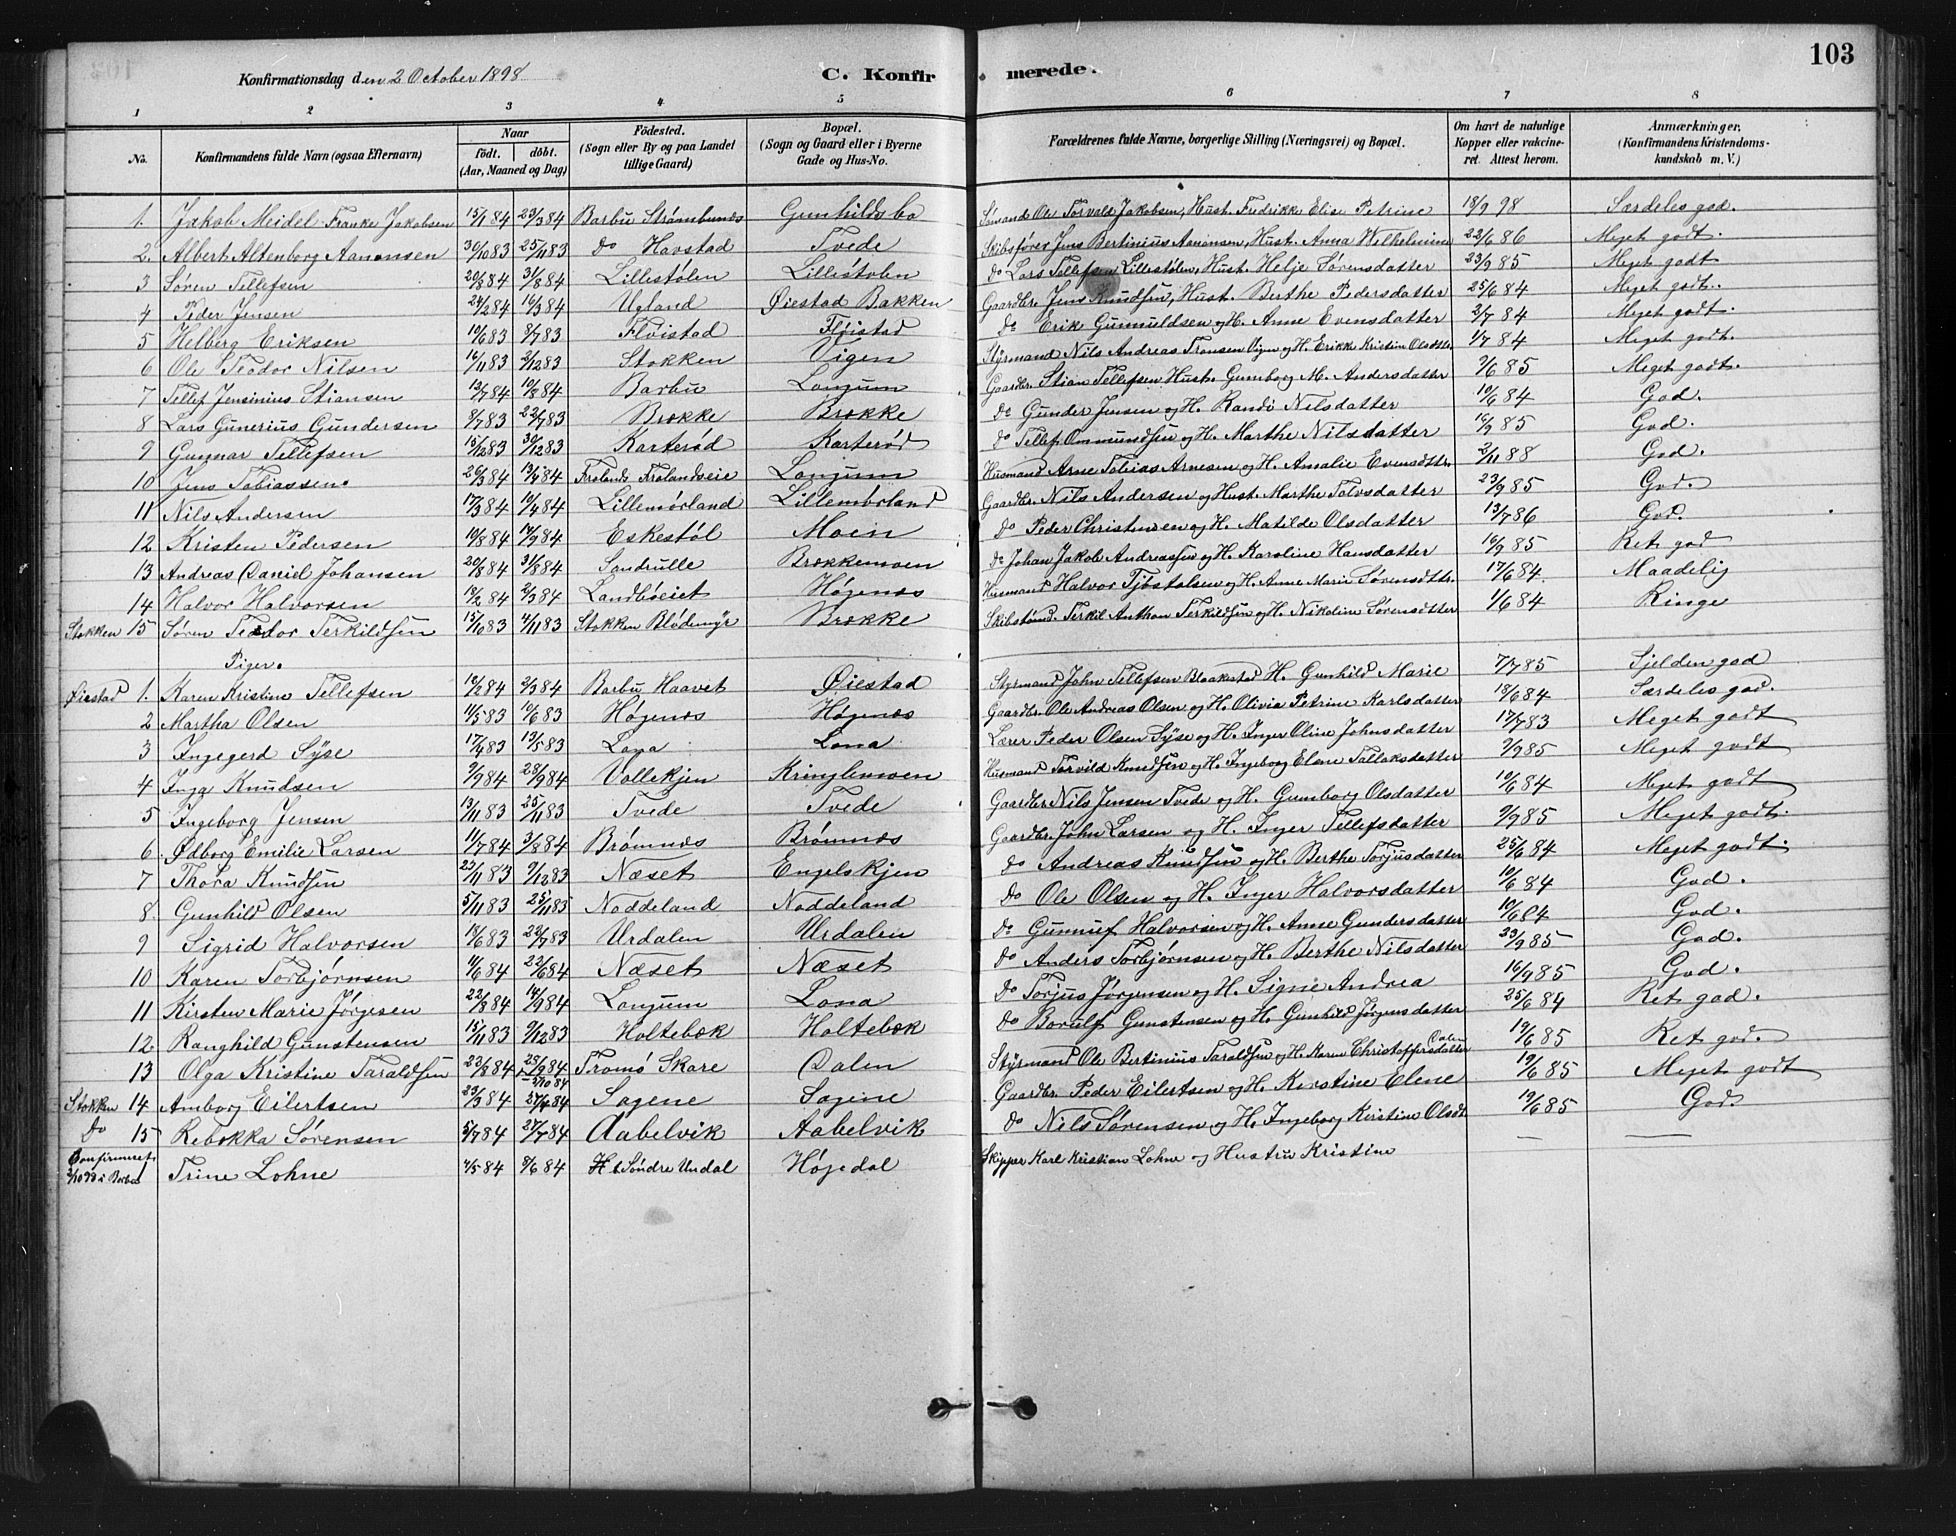 103
Konfirmationsdag den 2 October 1898
C. Konfirmerede.
1 2 3 4 5 6 7 8
No.
Konfirmandens fulde Navn (ogsaa Efternavn)
Naar
födt. döbt.
(Aar, Maaned og Dag)
Födested.
(Sogn eller By og paa Landet tillige Gaard)
Bopæl.
(Sogn og Gaard eller i Byerne Gade og Hus-No.
Forældrenes fulde Navne, borgerlige Stilling (Næringsvei) og Bopæl.
Om havt de naturlige Kopper eller vakcineret. Attest herom.
Anmærkninger,
(Konfirmandens Kristendomskundskab m. V.)
1. Jakob Meidel Franke Jakobsen 15/1 84 23/3 84 Barbu Strømbunes Gunhildsbo Sømand Ole Torvald Jakobsen, Hust. Fredrikke Elise Petrine 18/9 98 Særdeles god.
2. Albert Altenborg Aanonsen 30/10 83 25/11 83 do Havstad Tvede Skibsfører Jens Bertinius Aanonsen, Hust. Anna Wilhelmine 22/6 86 Meget godt.
3 Søren Tellefsen 20/8 84 31/8 84 Lillestølen Lillestølen do Lars Tellefsen Lillestølen, Hust. Helje Sørensdatter 23/9 85 Meget godt
4 Peder Jensen 24/2 84 16/3 84 Ugland Øiestad Bakken Gaardbr. Jens Knudsen, Hust. Berthe Pedersdatter 25/6 84 Meget godt.
5 Helberg Eriksen 10/6 83 8/7 83 Fløistad Fløistad do Erik Gunnuldsen og H. Anne Evensdatter 2/7 84 Meget godt.
6 Ole Teodor Nilsen 16/11 83 2/12 83 Stokken Vigen Styrmand Nils Andreas Fransen Vigen og H. Erikke Kristin Olsdttr 1/7 84 Meget godt.
7 Tellef Jensinius Stiansen 13/7 84 10/8 84 Barbu Longum Gaardbr. Stian Tellefsen Hust. Gunborg M. Andersdatter 9/6 85 Meget godt.
8 Lars Gunerius Gundersen 8/7 83 22/7 83 Brække Brække do Gunder Jensen og H. Randi Nilsdatter 10/6 84 God.
9 Gunnar Tellefsen 15/12 83 30/12 83 Karterød Karterød do Tellef Ommundsen og H. Marthe Nilsdatter 16/9 85 God.
10 Jens Tobiassen. 20/3 84 13/4 84 Frolands Frolandseie Longum Husmand Arne Tobias Arnesen og H. Amalie Evensdttr. 2/11 88 God.
11 Nils Andersen 17/3 84 10/4 84 Lillemørland Lillemørland Gaardbr. Nils Andersen og Hust. Marthe Talosdatter 23/9 85 God.
12 Kristen Pedersen 10/8 84 14/9 84 Eskestøl Moen do Peder Christensen og H. Matilde Olsdatter 13/7 86 God.
13 Andreas Daniel Johansen 20/8 84 31/8 84 Sandrulle Brækkemoen do Johan Jakob Andreassen og H. Karoline Hansdatter 16/9 85 Ret god
14 Halvor Halvorsen 18/2 84 2/3 84 Landbøeiet Høgenæs Husmand Halvor Tjøstolsen og H. Anne Marie Sørensdttr. 17/6 84. Maadelig
Stokken 15 Søren Teodor Terkildsen 15/10 83 4/11 83 Stokken Blødemyr Brække Skibstømd. Terkil Anthon Terkildsen og H. Nikoline Sørensdtter 1/6 84 Ringe
Piger.
Øiestad 1. Karen Kristine Tellefsen 10/2 84 2/3 84 Barbu Haavet Øiestad Styrmand John Tellefsen Blaakestad H. Gunhild Marie 7/7 85 Sjelden god
2 Martha Olsen 11/5 83 10/6 83 Høgenæs Høgenæs Gaardbr. Ole Andreas Olsen og H. Olivia Petrine Karlsdatter 18/6 84 Særdeles god.
3 Ingegerd Syse 17/4 83 13/5 83 Lona Lona Lærer Peder Olsen Syse og H. Inger Oline Johnsdatter 17/7 83 Meget godt
4 Inga Knudsen 9/9 84 28/9 84 Vollekjen Kringlemoen Husmand Torvild Knudsen og H. Ingeborg Elene Tallaksdatter 9/9 85 Meget godt
5 Ingeborg Jensen 13/11 83 25/11 83 Tvede Tvede Gaardbr. Nils Jensen Tvede og H. Gunborg Olsdatter 10/6 84 Meget godt
6. Ødborg Emilie Larsen 11/7 84 3/8 84 Brømnæs Brømnæs Gaardbr. John Larsen og H. Inger Tellefsdatter 9/9 85 Meget godt.
7 Thora Knudsen 22/11 83 9/12 83 Næset Engelskjen do Andreas Knudsen og H. Berthe Torjusdatter 25/6 84 Meget godt.
8. Gunhild Olsen 5/11 83 25/11 83 Noddeland Noddeland do Ole Olsen og H. Inger Halvorsdatter 10/6 84 God.
9 Sigrid Halvorsen 18/6 83 22/7 83 Urdalen Urdalen do Gunnuf Halvorsen og H. Anne Gundersdatter 10/6 84 God.
10 Karen Torbjørnsen 11/6 84 22/6 84 Næset Næset do Anders Torbjørnsen og H. Berthe Nilsdatter 23/9 85 God.
11 Kirsten Marie Jørgesen 22/8 84 14/9 84 Longum Lona do Torjus Jørgensen og H. Signe Andrea 16/9 85 God.
12. Ranghild Gunstensen 15/11 83 9/12 83 Holtebæk Holtebæk do Borulf Gunstensen og H. Gunhild Jørgensdatter 25/6 84 Ret god.
13 Olga Kristine Taraldsen 22/8 84 28/9 84 Tromø Skare Dalen Styrmand Ole Bertinius Taraldsen og H. Karen Christoffersdatter Dalen 19/6 85 Ret god.
Stokken 14 Amborg Eilertsen 23/3 84 27/4 84 Sagene Sagene Gaardbr. Peder Eilertsen og H. Kirstine Elene 19/6 85 Meget godt
Do 15 Rebekka Sørensen 5/7 84 27/7 84 Aabelvik Aabelvik do Nils Sørensen og H. Ingeborg Kirstine Olsdt. 19/6 85 God.
Confirmeret 2/10 98 i Barbu Trine Lohne 4/5 84 8/6 84 H. t Søndre Undal Høgedal Skipper Karl Kristian Lohne og Hustru Kristine — —